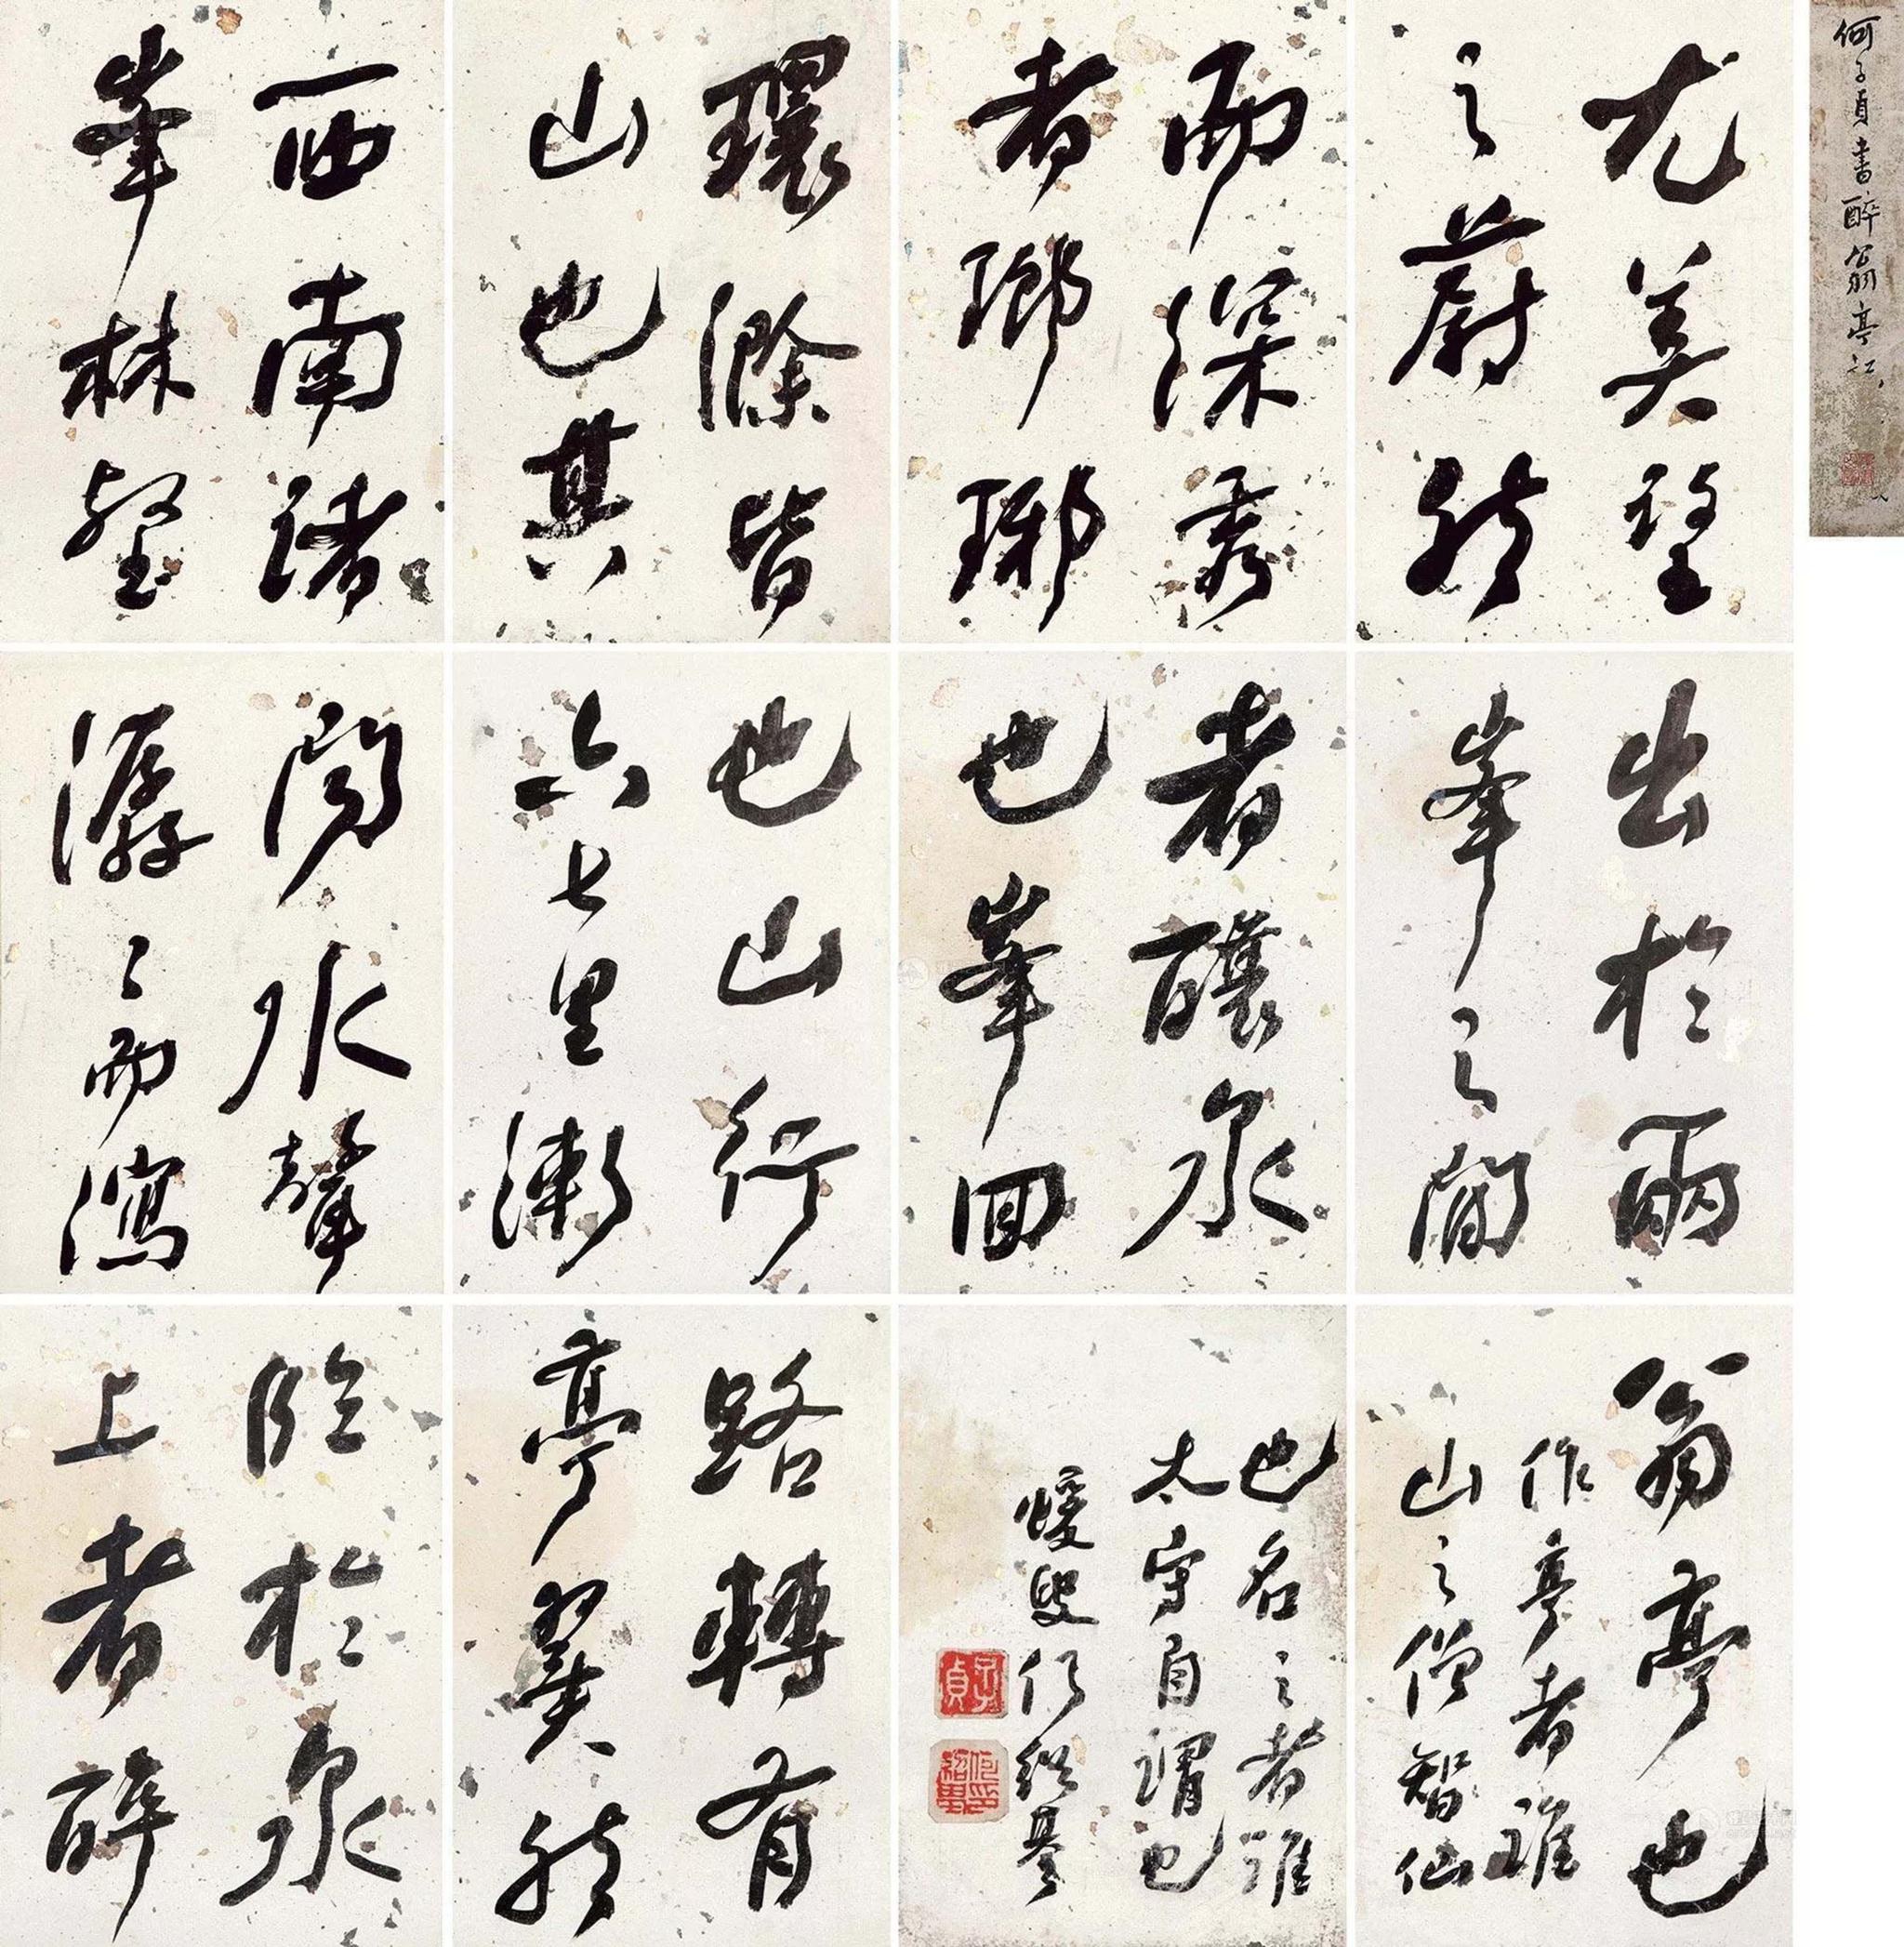 何子貞書醉翁亭記
環滁皆
山也其
西南諸
峯林壑
尤美望
之蔚然
而深秀
者瑯琊
也山行
六七里漸
聞水聲
潺〻而瀉
出於兩
峯之間
者釀泉
也峯回
路轉有
亭翼然
臨於泉
上者醉
翁亭也
作亭者誰
山之僧智仙
也名之者誰
太守自謂也
蝯叟何紹基
子貞
何紹基印